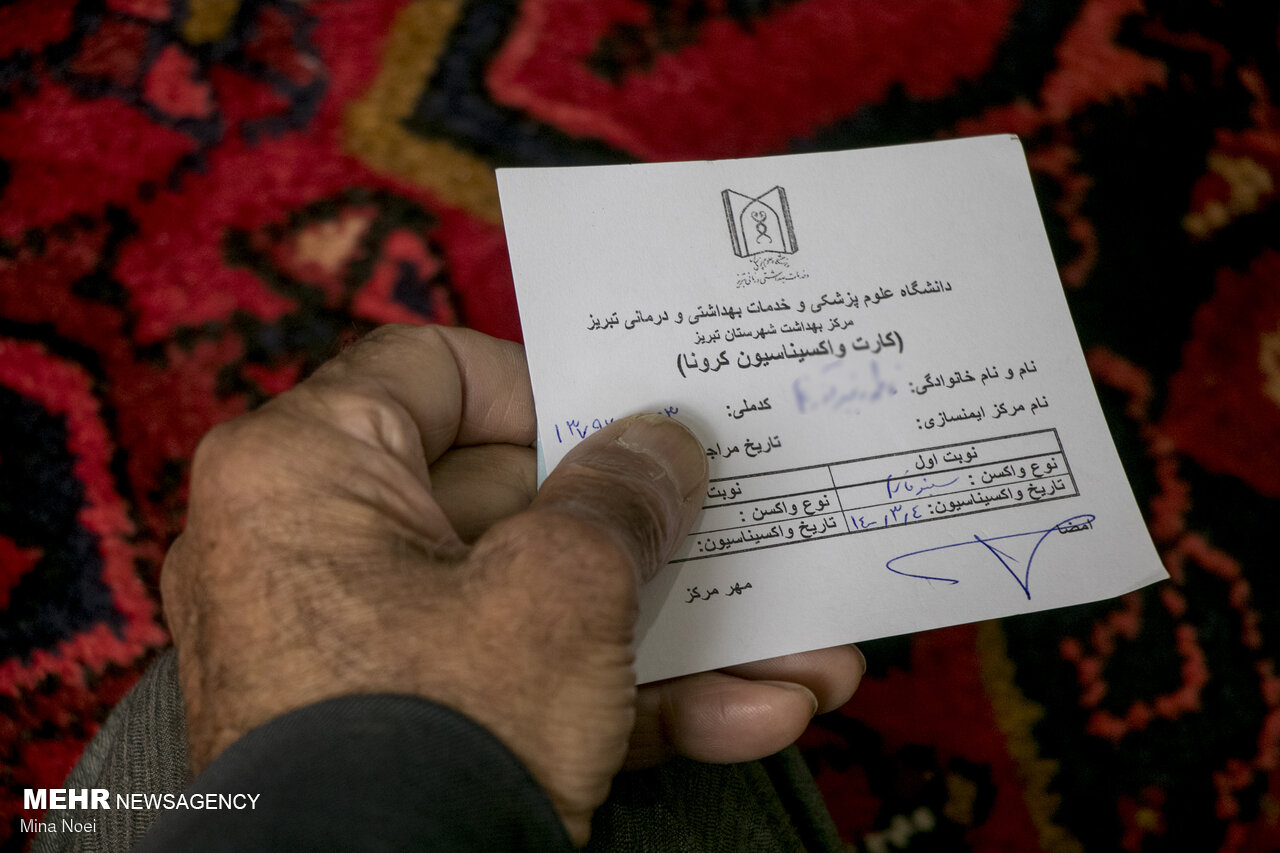 دانشگاه علوم پزشکی و خدمات بهداشتی و درمانی تبریز
دانشگاه علوم پزشکی و خدمات بهداشتی و درمانی تبریز
مرکز بهداشت شهرستان تبریز
(کارت واکسیناسیون کرونا)
نام و نام خانوادگی: کدملی:
نام مرکز ایمنسازی: تاریخ مراج
نوبت اول نوبت
نوع واکسن : سینوفارم نوع واکسن :
تاریخ واکسیناسیون: ۱۴۰۰/۳/۴ تاریخ واکسیناسیون:
امضا
مهر مرکز
MEHR NEWSAGENCY
Mina Noei